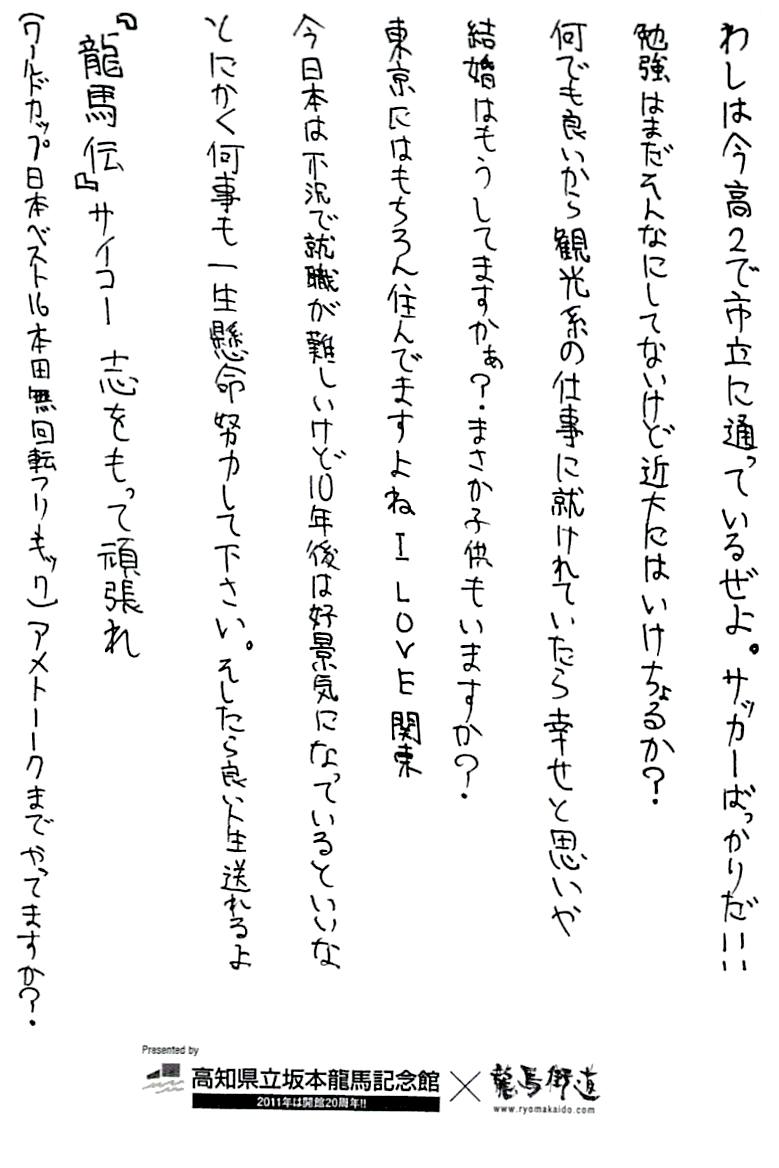 わしは今高2で市立に通っているぜよ。サッカーばっかりだ!!
勉強はまだそんなにしてないけど近大にはいけちょるか?
何でも良いから観光系の仕事に就けれていたら幸せと思いや
結婚はもうしてますかぁ?.まさか子供もいますか?.
東京にはもちろん住んでますよね I LOVE 関東
今日本は不況で就職が難しいけど10年後は好景気になっているといいな
とにかく何事も一生懸命努力して下さい。そしたら良い人生送れるよ
『龍馬伝』サイコー 志をもって頑張れ
(ワールドカップ日本ベスト16本田無回転フリーキック)アメトーークまでやってますか?.
Presented by
高知県立坂本龍馬記念館×龍馬街道
2011年は開館20周年!!
www.ryomakaido.com